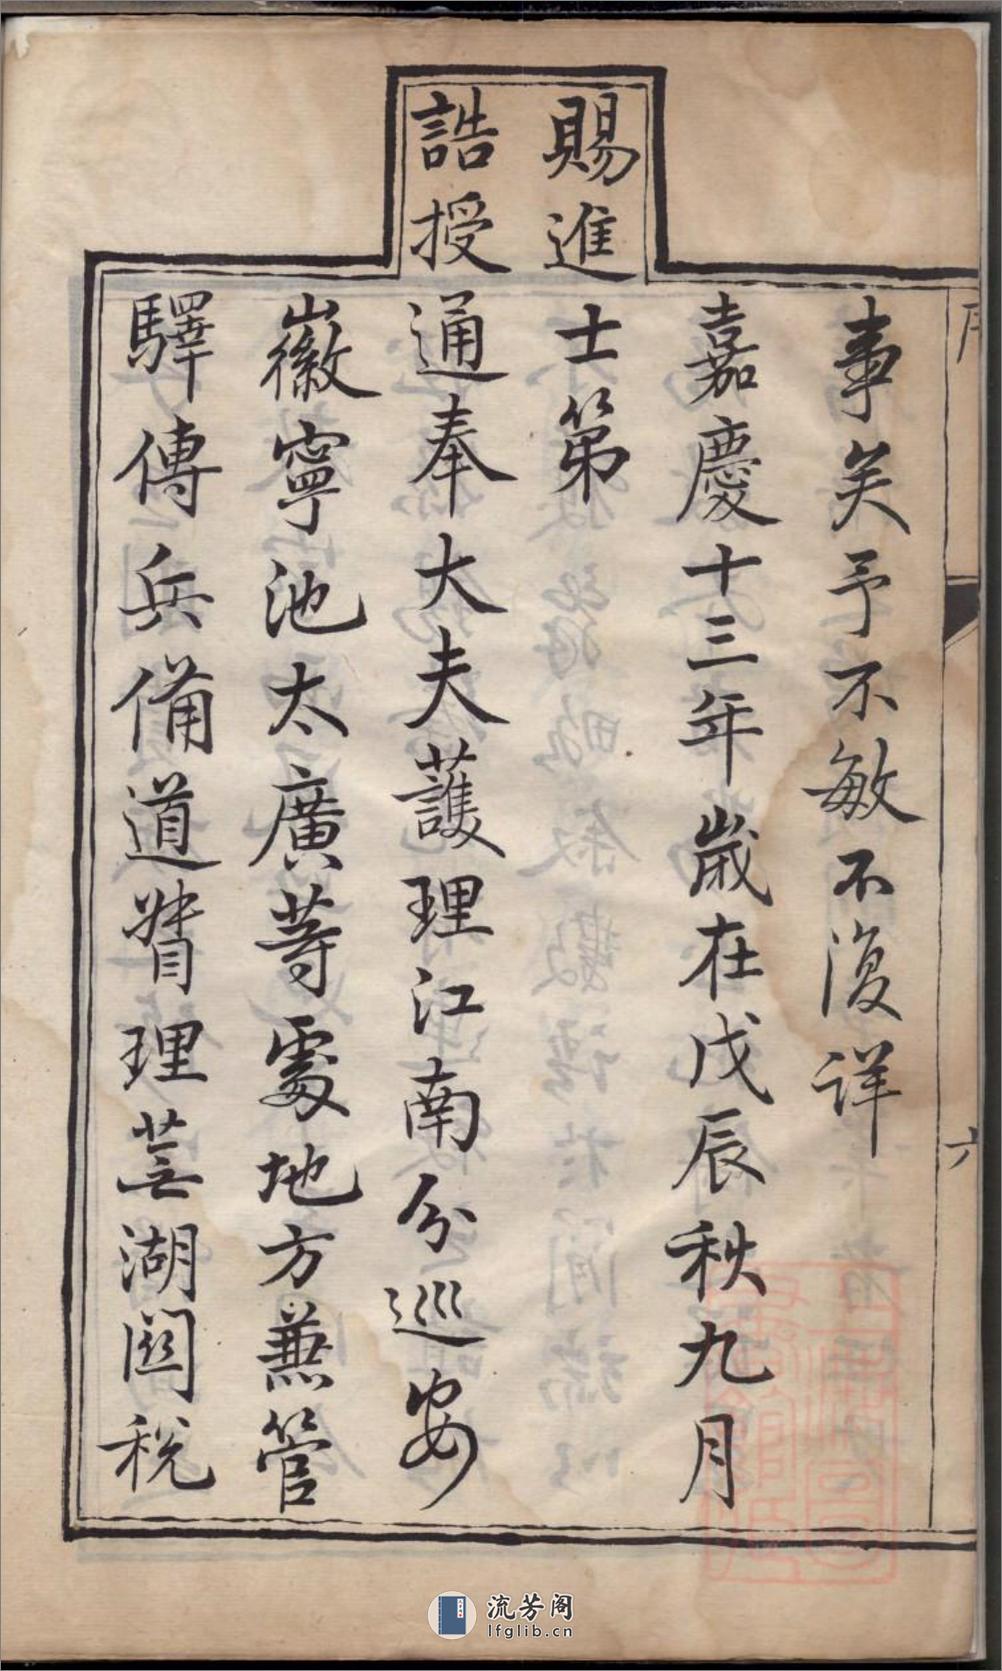 事矣予不敏不復詳
嘉慶十三年歲在戊辰秋九月
賜進士第
誥授通奉大夫護理江南分巡安
徽寧池太廣等處地方兼管
驛傳兵備道督理蕪湖關稅
六
流芳阁
lfglib.cn